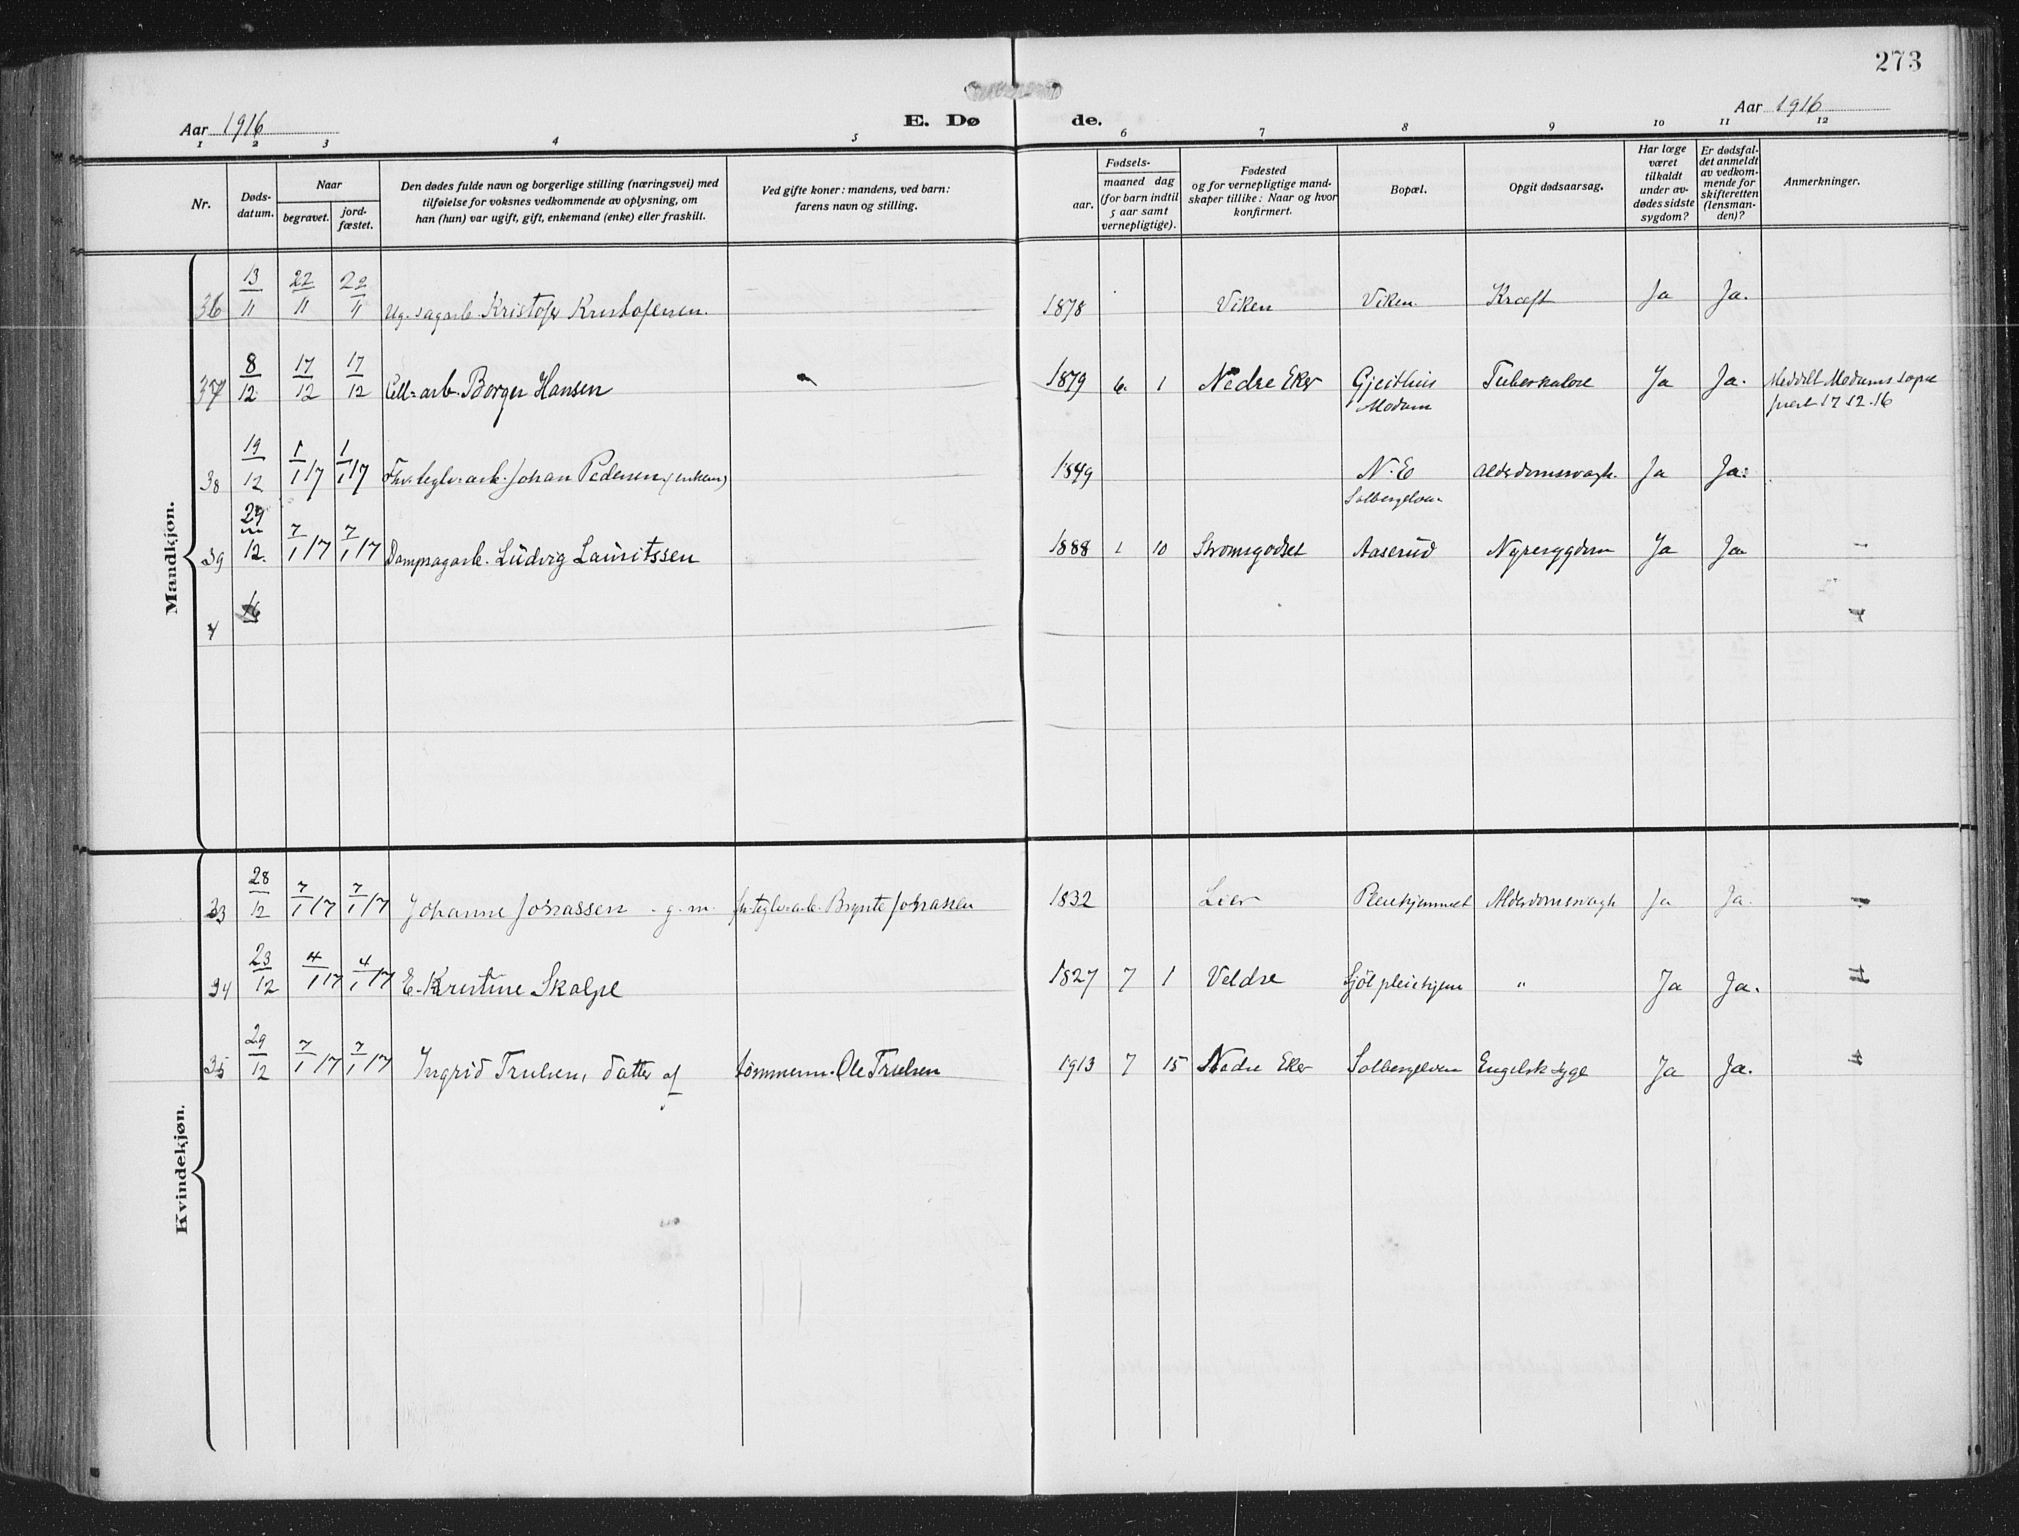 273
Aar 1916
E. Dø de.
Aar 1916
1 2 3 4 5 6 7 8 9 10 11 12
Nr.
Døds-
datum.
Naar
begravet.
jord-
fæstet.
Den dødes fulde navn og borgerlige stilling (næringsvei) med
tilføielse for voksnes vedkommende av oplysning, om
han (hun) var ugift, gift, enkemand (enke) eller fraskilt.
Ved gifte koner: mandens, ved barn:
farens navn og stilling.
Fødsels-
aar.
maaned dag
(for barn indtil
5 aar samt
vernepligtige).
Fødested
og for vernepligtige mand-
skaper tillike: Naar og hvor
konfirmert.
Bopæl.
Opgit dødsaarsag.
Har læge
været
tilkaldt
under av-
dødes sidste
sygdom?
Er dødsfal-
det anmeldt
av vedkom-
mende for
skifteretten
(lensman-
den)?
Anmerkninger.
Mandkjøn.
36 13/11 22/11 22/11 Ug. sagarb. Kristofer Kristofersen. 1878 Viken Viken. Kræft Ja Ja.
37 8/12 17/12 17/12 Cell-arb. Borger Hansen 1879 6 1 Nedre Eker Gjeithus Tuberkulose Ja Ja. Meddelt Modums sogne
Modum prest 17 12.16
38 19/12 1/1 17 1/1 17 Fhv. teglv.arb. Johan Pedersen (enkem) 1849 N. E Alderdomssvagh. Ja Ja.
Solbergelven
39 29/12 7/1 17 7/1 17 Dampsagarb. Ludvig Lauritssen 1888 1 10 Strømsgodset Aaserud Nyresygdom Ja Ja
4 16
Kvindekjøn.
33 28/12 7/1 17 7/1 17 Johanne Johassen g. m. fv. teglv.arb. Brynte Johassen 1832 Lier Pleiehjemmet Alderdomssvagh Ja Ja.
34 23/12 4/1 17 4/1 17 E. Kristine Skalpe 1827 7 1 Veldre Sjöl pleiehjem " Ja Ja.
35 29/12 7/1 17 7/1 17 Ingrid Trulsen, datter af tømmerm. Ole Trulsen 1913 7 15 Nedre Eker Solbergelven Engelsk syge Ja Ja.